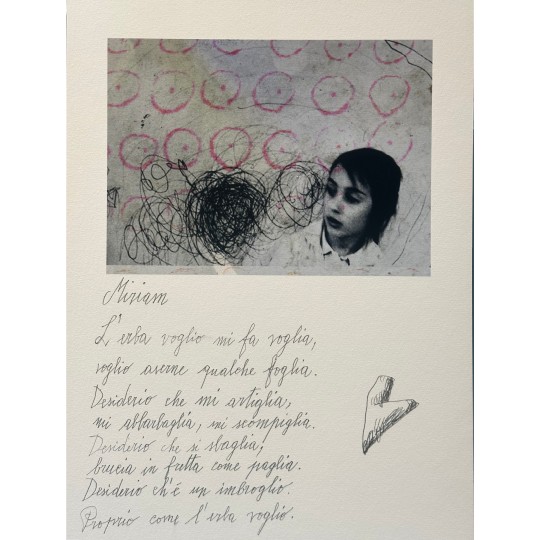 Miriam
L'erba voglio mi fa voglia,
voglio averne qualche foglia.
Desiderio che mi artiglia,
mi abbarbaglia, mi scompiglia.
Desiderio che si sbaglia;
brucia in fretta come paglia.
Desiderio ch'è un imbroglio.
Proprio come l'erba voglio.